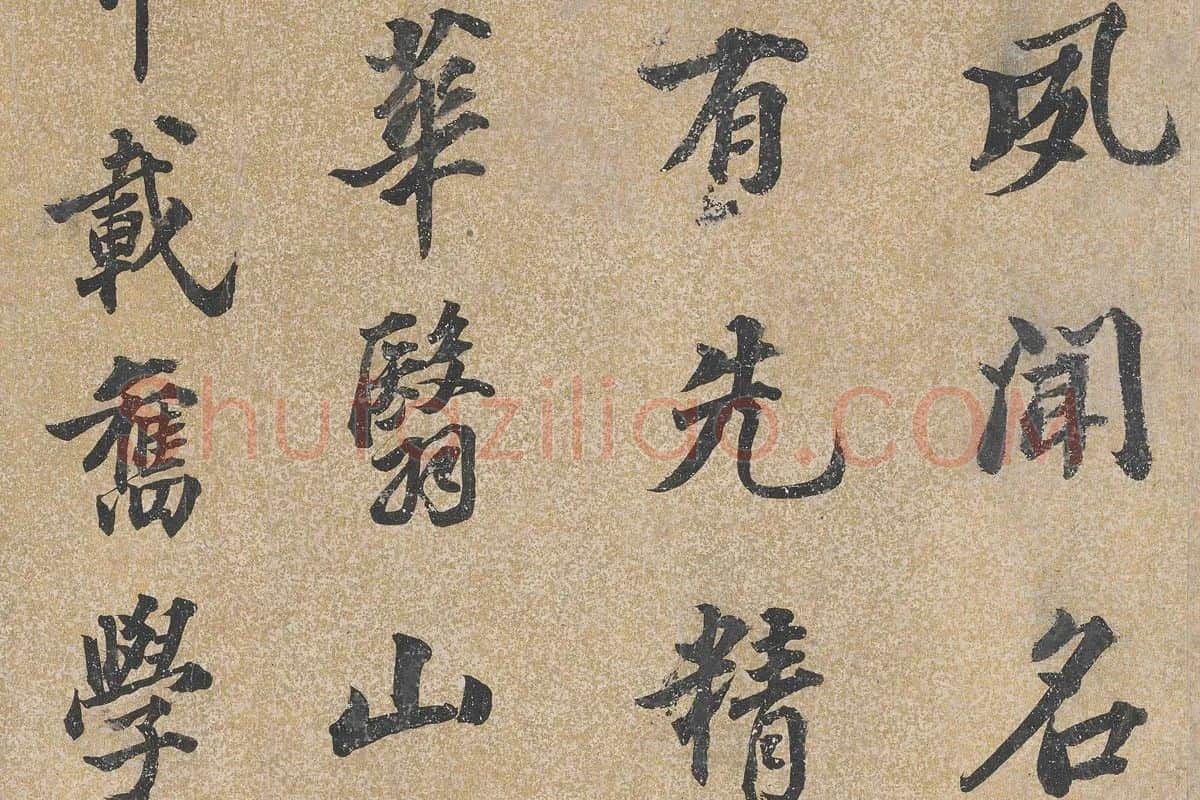 夙聞名
有先精
華翳山
載舊學
shufaziliao.COM